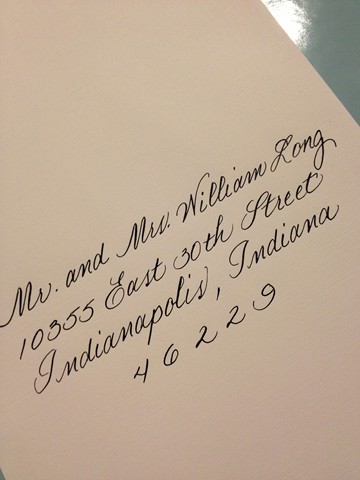 Mr. and Mrs. William Long
10355 East 30th Street
Indianapolis, Indiana
46229